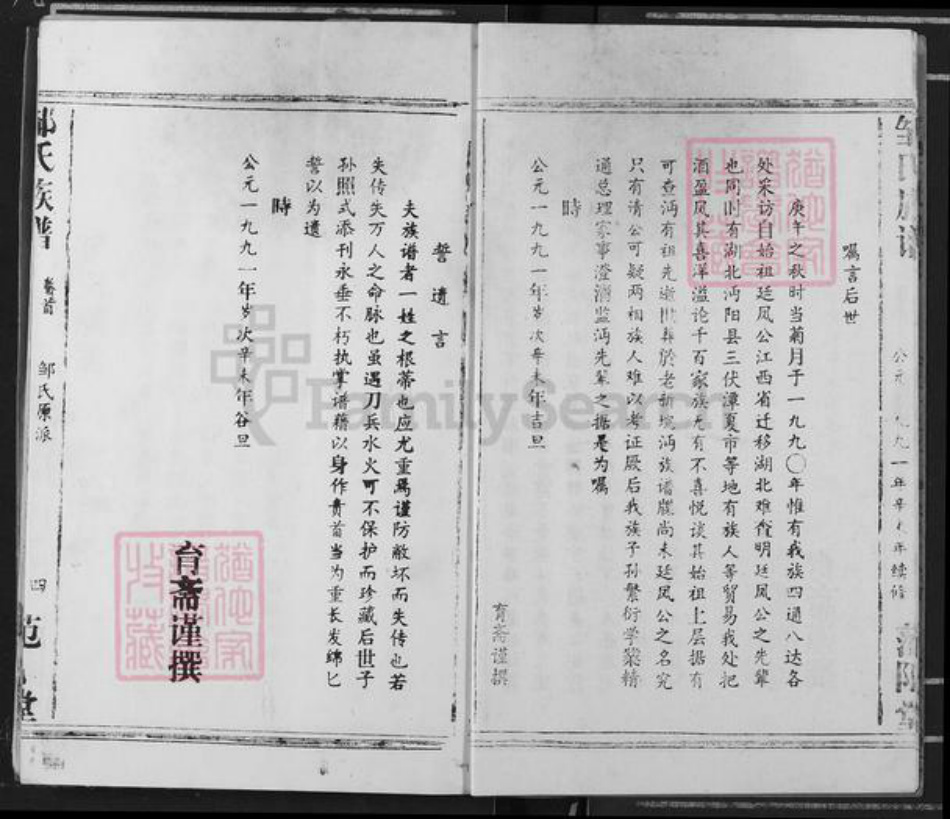 嘱言后世
庚午之秋时当菊月于一九九〇年惟有我族四通八达各
处采访自始祖廷凤公江西省迁移湖北难查明廷凤公之先辈
也同时有湖北沔阳县三伏潭夏市等地有族人等贸易我处把
酒盈风其喜洋溢论千百家族尤有不喜悦谈其始祖上层据有
可查沔有祖先逝世葬於老新坟沔族谱牒尚未廷凤公之名究
只有清公可疑两相族人难以考证厥后我族子孙繁衍学业精
通总理家事澄清监沔先辈之据是为嘱
時
公元一九九一年岁次辛未年吉旦
育斋谨撰
公元一九九一年辛未年续修
誓遗言
夫族谱者一姓之根蒂也应尤重焉谨防敝坏而失传也若
失传失万人之命脉也虽遇刀兵水火可不保护而珍藏后世子
孙照式添刊永垂不朽执掌谱籍以身作责首当为重长发绵匕
誓以为遗
時
公元一九九一年岁次辛未年谷旦
育斋谨撰
邹氏族谱
卷首
邹氏原派
四
FamilySearch